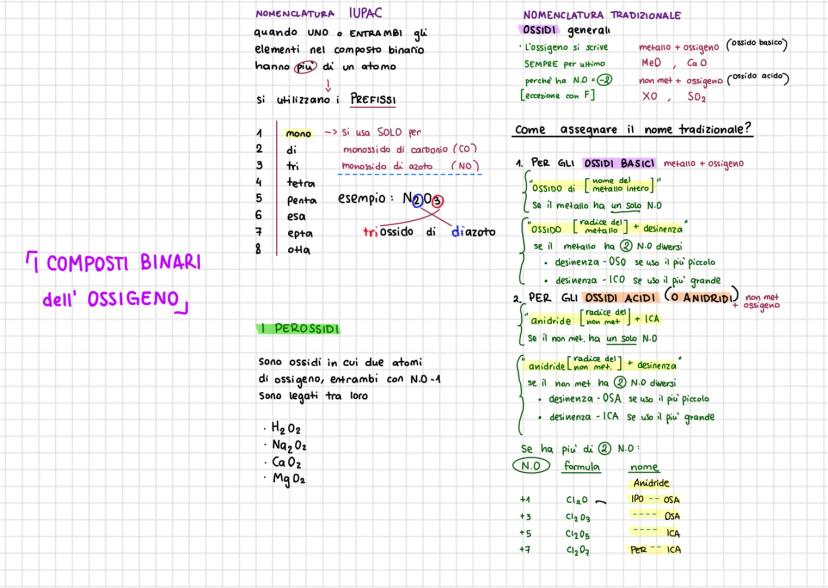 「I COMPOSTI BINARI
dell' OSSIGENO」
NOMENCLATURA IUPAC
quando UNO o ENTRAMBI gli
elementi nel composto binario
hanno più di un atomo
↓
si utilizzano i PREFISSI
1 mono -> si usa SOLO per
2 di monossido di carbonio (CO)
3 tri monossido di azoto (NO)
4 tetra
5 penta esempio: N2O3
6 esa
7 epta triossido di diazoto
8 otta
I PEROSSIDI
sono ossidi in cui due atomi
di ossigeno, entrambi con N.O -1
sono legati tra loro
· H2O2
· Na2O2
· CaO2
· MgO2
NOMENCLATURA TRADIZIONALE
OSSIDI generali
· L'ossigeno si scrive metallo + ossigeno (ossido basico)
SEMPRE per ultimo MeO , CaO
perché ha N.O = -2 non met + ossigeno (ossido acido)
[eccezione con F] XO , SO2
Come assegnare il nome tradizionale?
1. PER GLI OSSIDI BASICI metallo + ossigeno
"OSSIDO di [nome del metallo intero]"
se il metallo ha un solo N.O
"OSSIDO [radice del metallo] + desinenza"
se il metallo ha 2 N.O diversi
• desinenza -OSO se uso il più piccolo
• desinenza -ICO se uso il più grande
2. PER GLI OSSIDI ACIDI (O ANIDRIDI) non met + ossigeno
"anidride [radice del non met] + ICA
se il non met. ha un solo N.O
"anidride [radice del non met.] + desinenza"
se il non met ha 2 N.O diversi
• desinenza -OSA se uso il più piccolo
• desinenza -ICA se uso il più grande
Se ha più di 2 N.O:
N.O formula nome
Anidride
+1 Cl2O IPO -- OSA
+3 Cl2O3 ---- OSA
+5 Cl2O5 ---- ICA
+7 Cl2O7 PER -- ICA